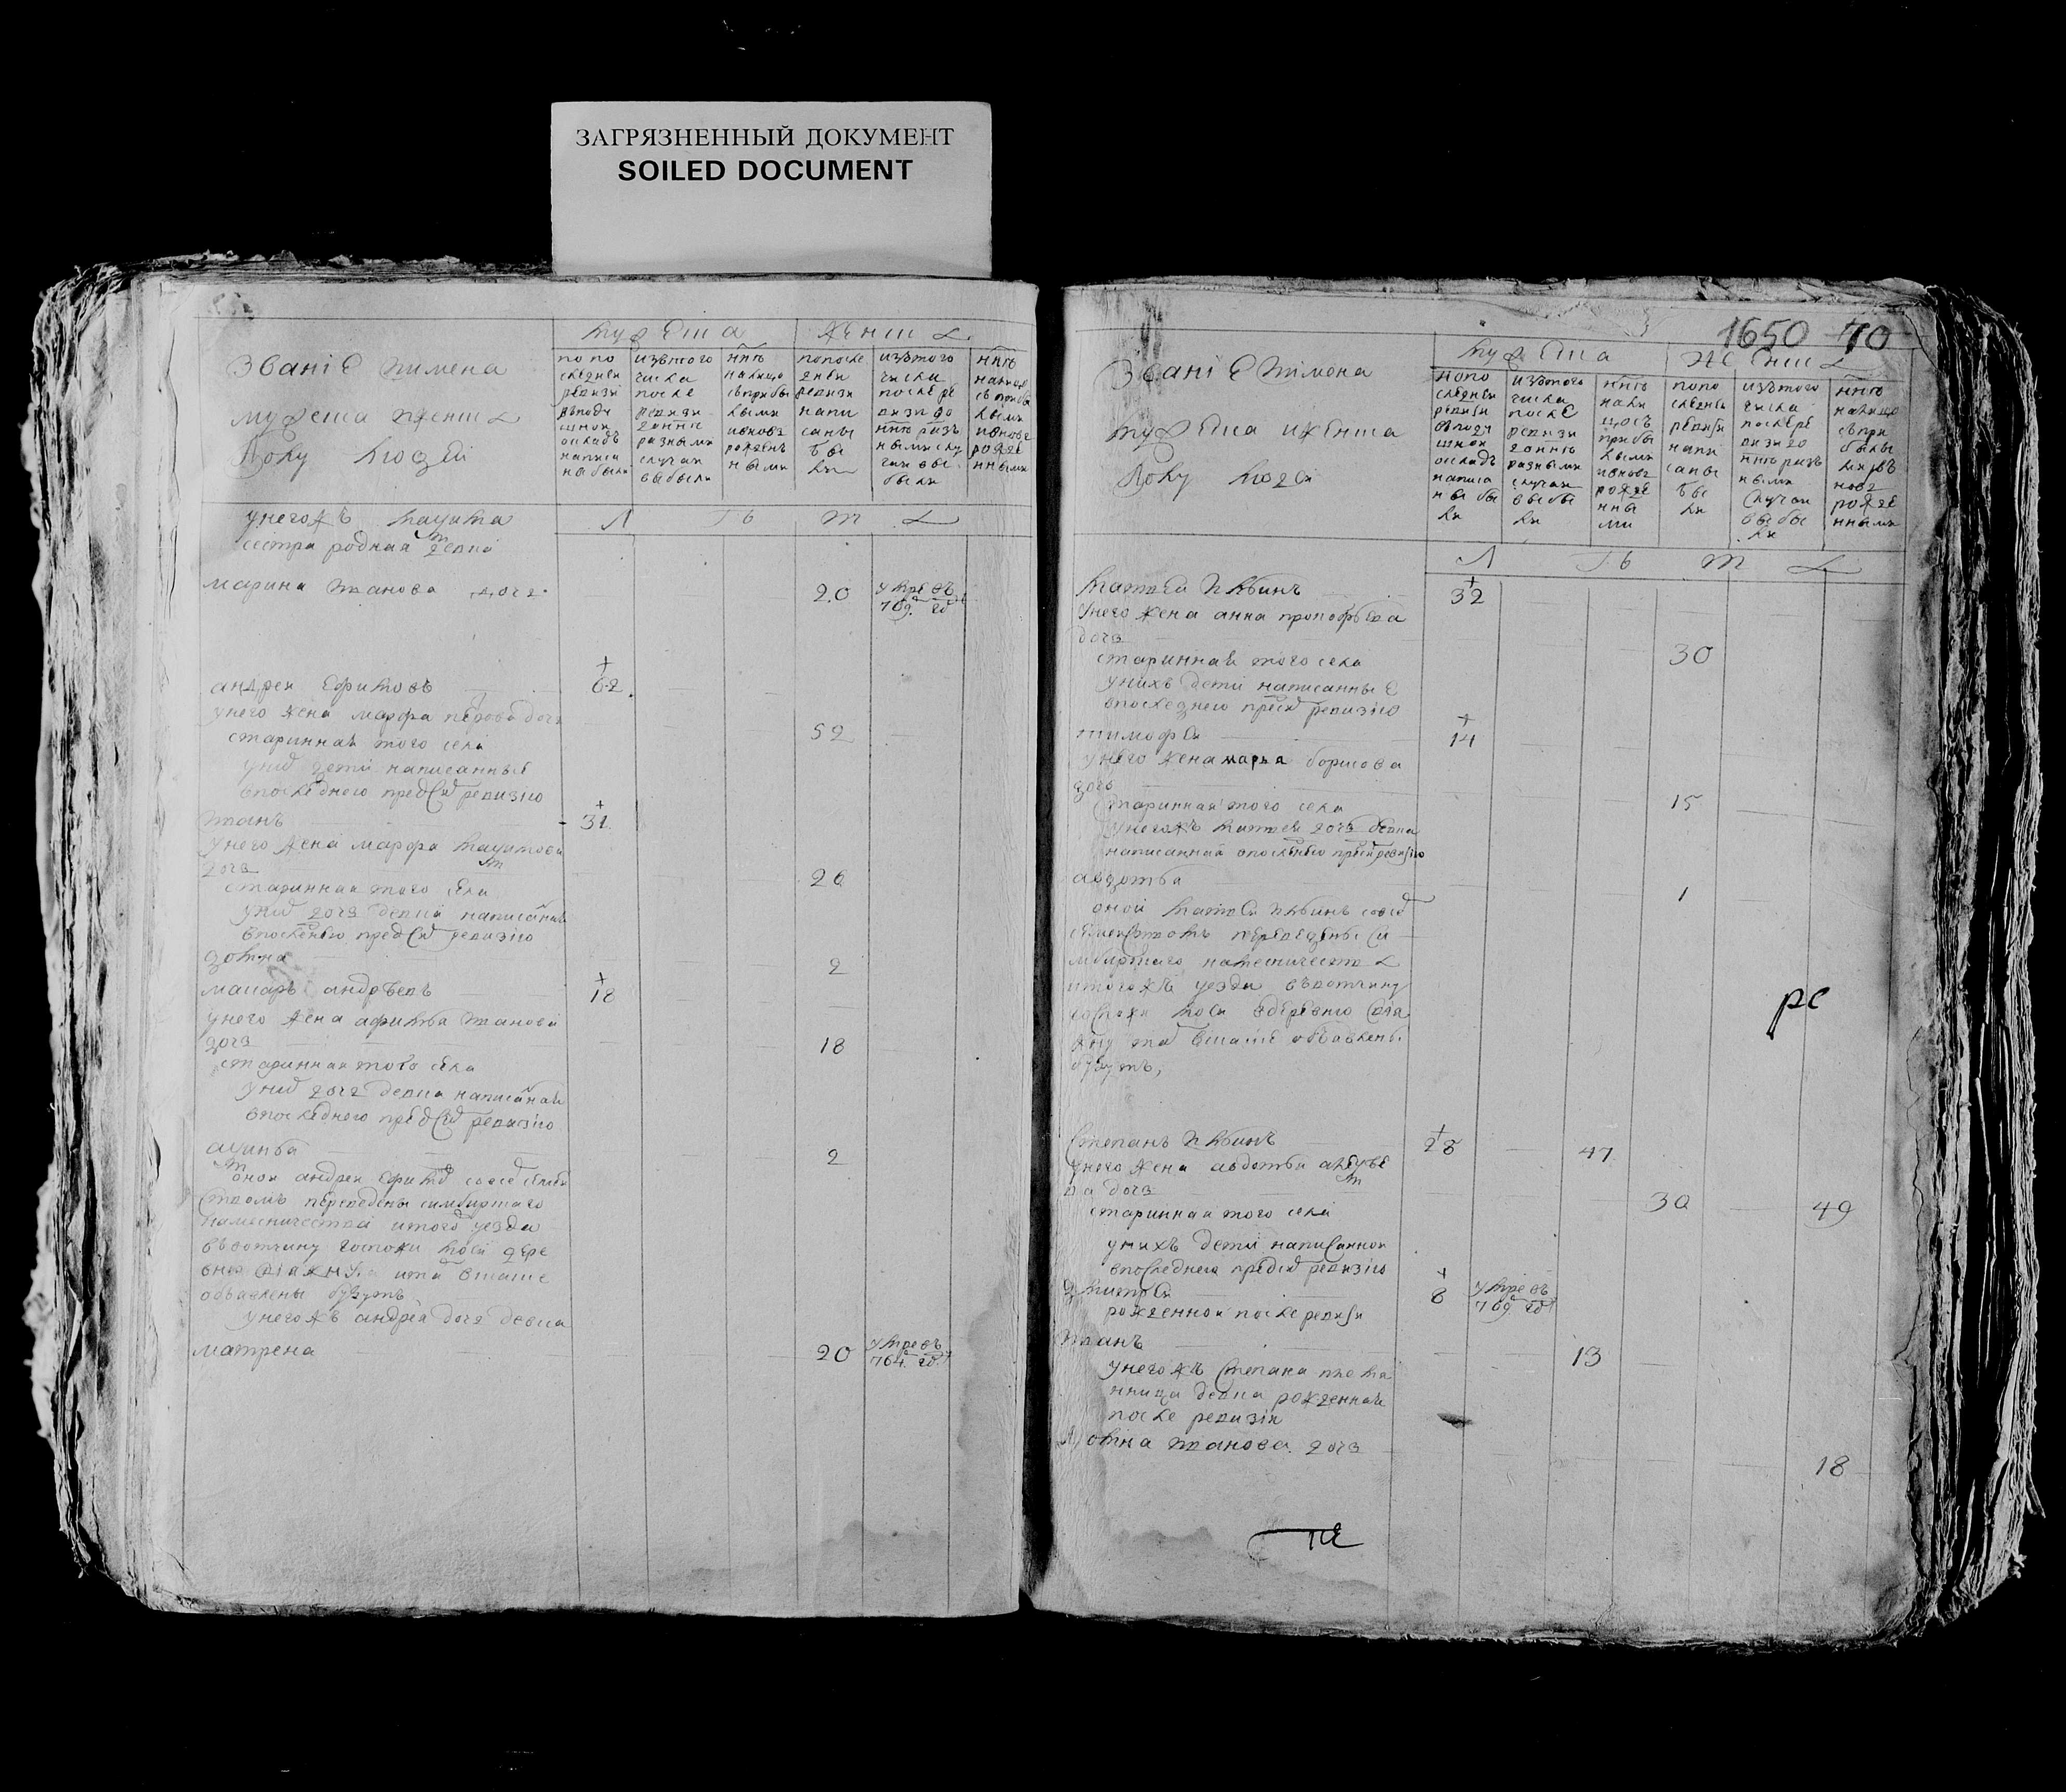 ЗАГРЯЗНЕННЫЙ ДОКУМЕНТ
SOILED DOCUMENT
званіе иимена
мужеска иженска
полу людей
мужеска
женска
попо
следней
ревизіи
вподу
шной
окладъ
написа
ны были
изътого
числа
после
ревизи
донне
разными
случаи
выбыли
ннѣ
налицо
съприбы
лыми
ивновь
рожден
ными
попосле
дней
ревизи
напи
саны
бы
ли
изътого
числа
послере
визи до
ннѣ разъ
ными слу
чаи вы
были
ннѣ
налицо
съприбы
лыми
ивновь
рожде
нными
Л Ѣ Т А
унегожъ
сестра родная девка
марина иванова дочь 20 умре въ
769 го
андрей ефимовъ 62
унего жена марфа дочь 52
стариннаи того села
уних дети написанные
впоследнею пред сим ревизию
иванъ 31
унего жена марфа
дочь 26
стариннаи того села
уних дочь девка написанная
впоследнею пред сим ревизию
домна 2
макаръ андреевъ 18
унего жена афимья иванова
дочь 18
стариннаи того села
уних дочь девка написанная
впоследнею пред сим ревизию
акулина 2
оной андрей ефимов совсем семей
ством переведены симбирскаго
наместничества итого уезда
въвотчину госпожи моей дере
вню итам всказке
объявлены будутъ
унегожъ андрея дочь девка
матрена 20 умре въ
764 го
1650 70
званіе иимена
мужеска иженска
полу людей
мужеска
женска
попо
следней
ревизи
вподу
шной
окладъ
написа
ны бы
ли
изътого
числа
после
ревизи
донне
разными
случаи
выбы
ли
ннѣ
нали
цосъ
прибы
лыми
ивновь
рожде
нны
ми
попо
следней
ревизи
напи
саны
бы
ли
изътого
числа
послере
визи до
ннѣ разъ
ными
случаи
выбы
ли
ннѣ
налицо
съпри
былы
ми ивъ
новь
рожде
нными
Л Ѣ Т А
матвей ильинъ 32
унего жена анна прокофьева
дочь 30
стариннаи того села
унихъ дети написанные
впоследнею пред сим ревизию
тимофей 14
унего жена марья борисова
дочь 15
стариннаи того села
унегожъ матвея дочь девка
написанная впоследнею пред сим ревизию
авдотья 1
оной матвей ильинъ совсем
семействомъ переведены си
мбирскаго наместничества
итогожъ уезда въвотчину
госпожи моей вдеревню
там всказке объявлены
будутъ,
рс
степанъ ильинъ 28 47
унего жена авдотья
ва дочь 30 49
стариннаи того села
унихъ дети написанной
впоследнею пред сим ревизию
дмитрей 8 умре въ
769 го
рожденной после ревизи
иванъ 13
унегожъ степана племя
нница девка рожденная
после ревизіи
домна иванова дочь
18